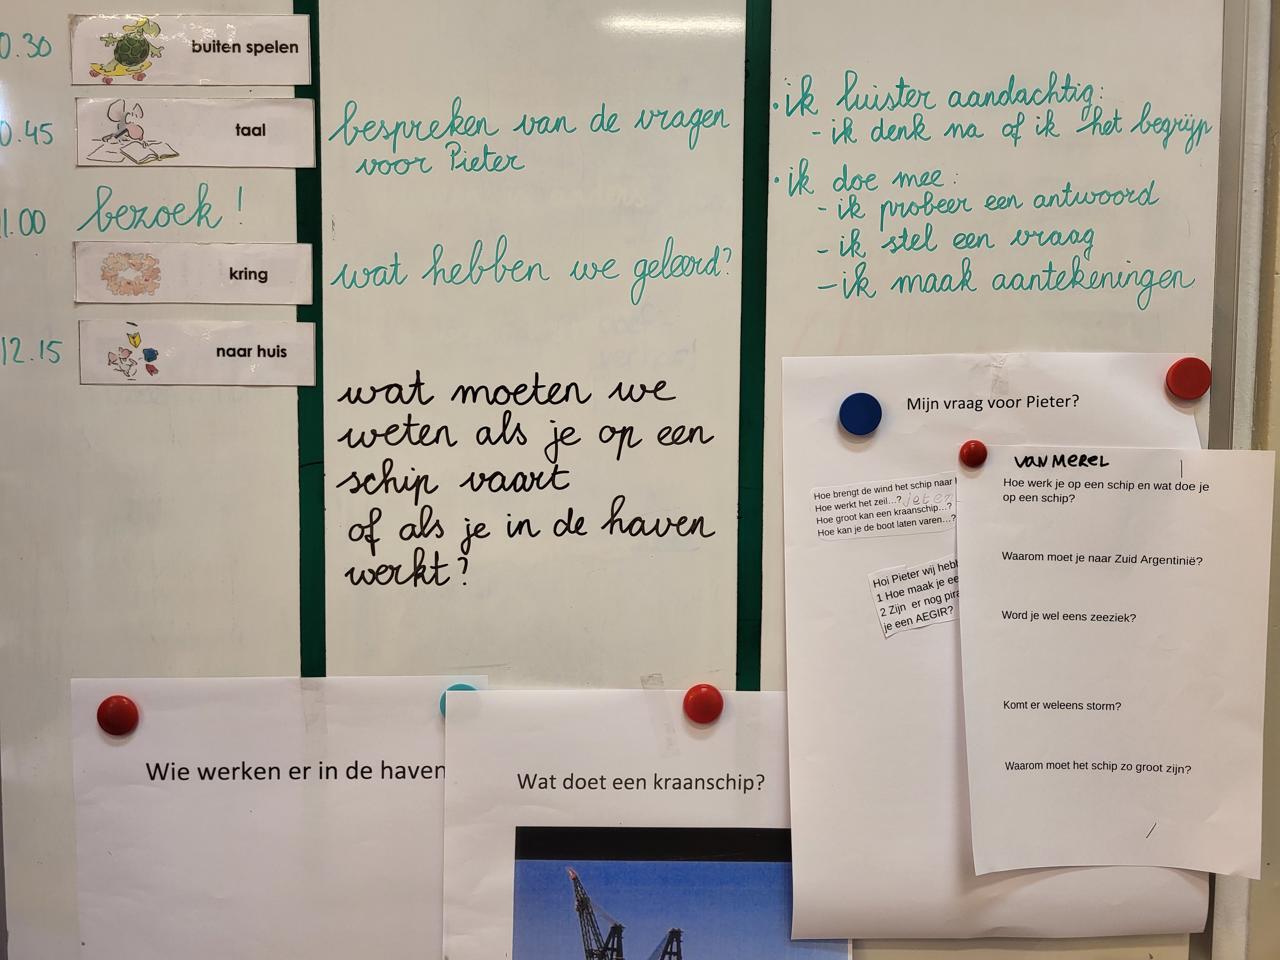 0.30
buiten spelen
0.45
taal
1.00
bezoek!
kring
12.15
naar huis
bespreken van de vragen
voor Pieter
wat hebben we geleerd?
wat moeten we
weten als je op een
schip vaart
of als je in de haven
werkt?
• ik luister aandachtig:
- ik denk na of ik het begrijp
• ik doe mee:
- ik probeer een antwoord
- ik stel een vraag
- ik maak aantekeningen
Mijn vraag voor Pieter?
Hoe brengt de wind het schip naar
Hoe werkt het zeil...?
Hoe groot kan een kraanschip...?
Hoe kan je de boot laten varen...?
Hoi Pieter wij
1 Hoe maak je
2 Zijn er nog
je een AEGIR?
VAN MEREL
Hoe werk je op een schip en wat doe je
op een schip?
Waarom moet je naar Zuid Argentinië?
Word je wel eens zeeziek?
Komt er weleens storm?
Waarom moet het schip zo groot zijn?
Wie werken er in de haven
Wat doet een kraanschip?